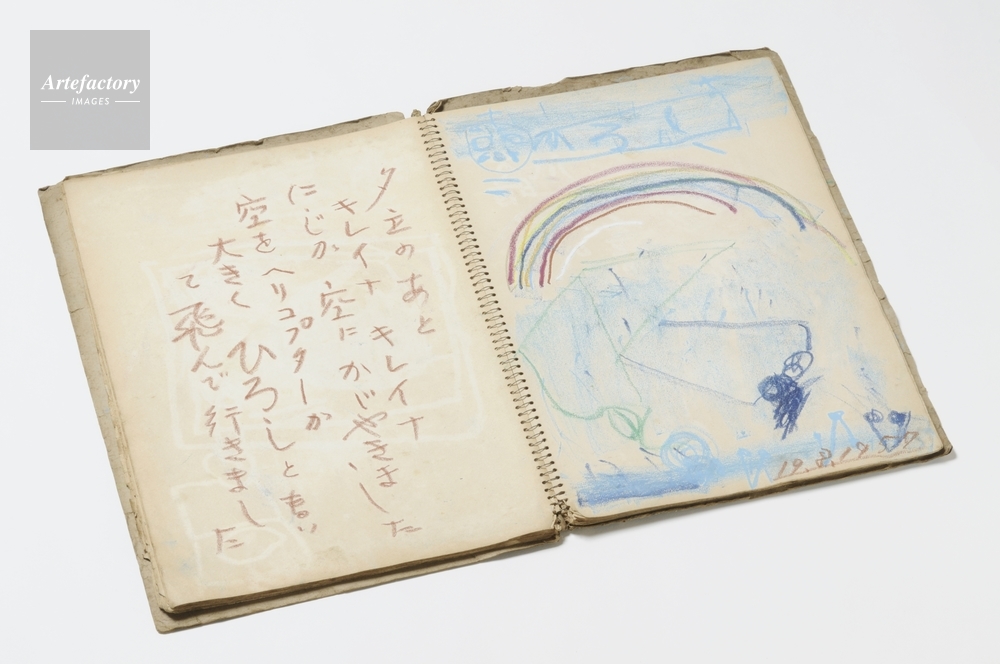 Artefactory
IMAGES
夕立のあと
キレイナ キレイナ
にじが 空に かゞやきました
空を ヘリコプターが
大きく ひろしと書い
て 飛んで行きました